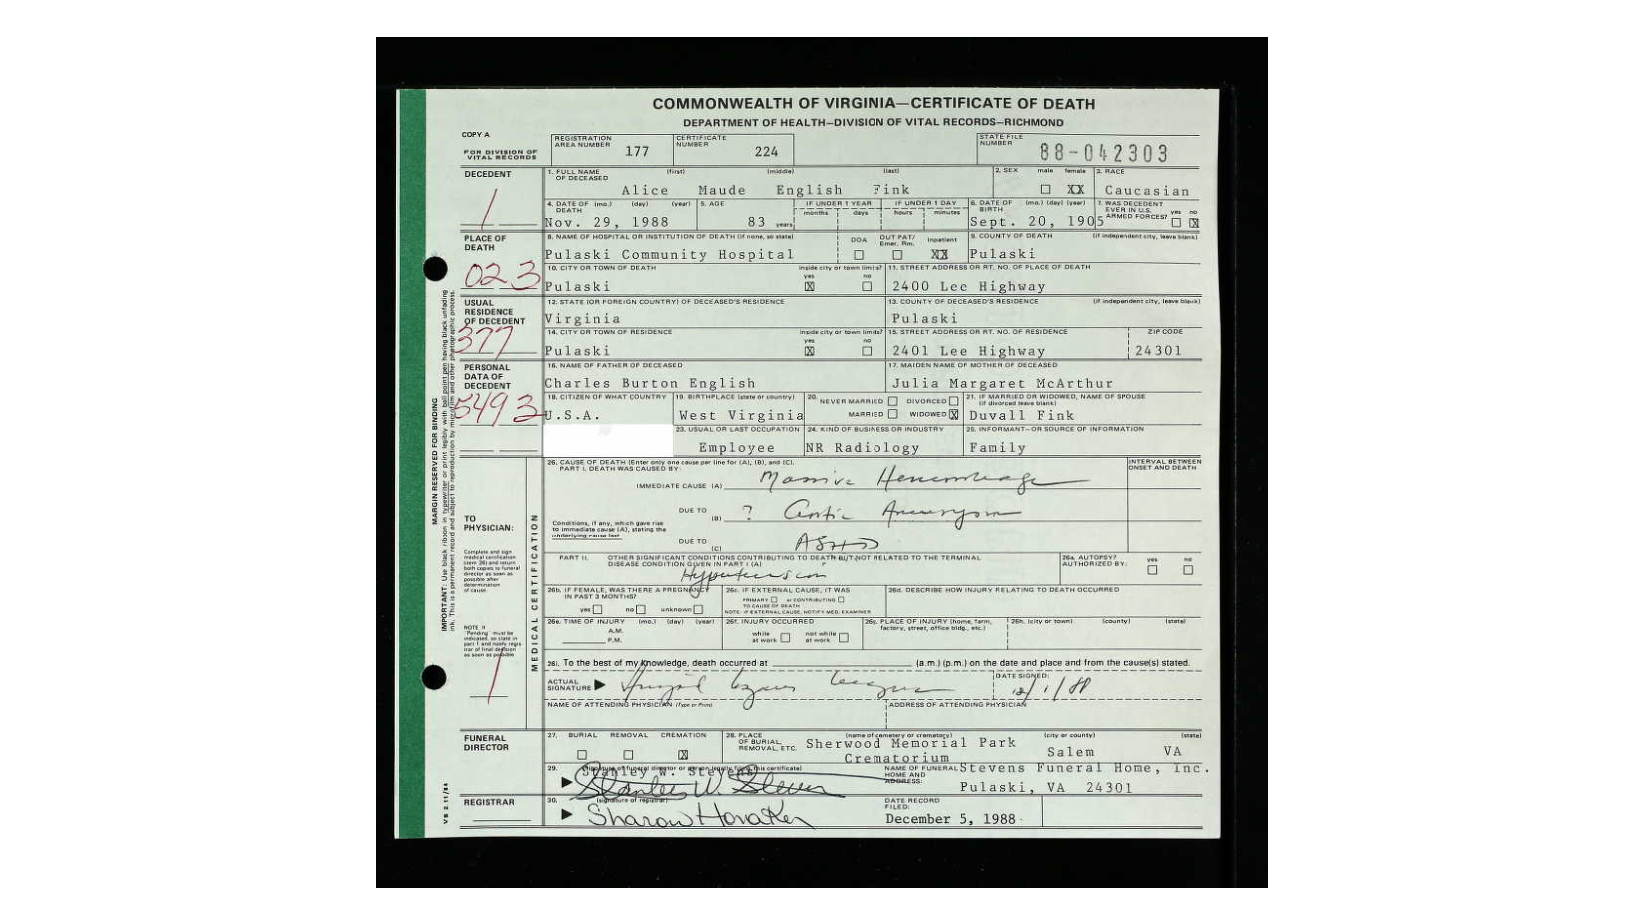 COMMONWEALTH OF VIRGINIA—CERTIFICATE OF DEATH
DEPARTMENT OF HEALTH—DIVISION OF VITAL RECORDS—RICHMOND
COPY A
FOR DIVISION OF VITAL RECORDS
REGISTRATION AREA NUMBER 177
CERTIFICATE NUMBER 224
STATE FILE NUMBER 88-042303
DECEDENT
1. FULL NAME OF DECEASED (first) (middle) (last)
Alice Maude English Fink
2. SEX male female XX
3. RACE Caucasian
4. DATE OF DEATH (mo.) (day) (year)
Nov. 29, 1988
5. AGE 83 years
IF UNDER 1 YEAR months days
IF UNDER 1 DAY hours minutes
6. DATE OF BIRTH (mo.) (day) (year)
Sept. 20, 1905
7. WAS DECEDENT EVER IN U.S. ARMED FORCES? yes no X
PLACE OF DEATH
023
8. NAME OF HOSPITAL OR INSTITUTION OF DEATH (if none, so state)
Pulaski Community Hospital
DOA OUT PAT/ Emer. Rm. Inpatient XX
9. COUNTY OF DEATH (if independent city, leave blank)
Pulaski
10. CITY OR TOWN OF DEATH inside city or town limits? yes X no
Pulaski
11. STREET ADDRESS OR RT. NO. OF PLACE OF DEATH
2400 Lee Highway
USUAL RESIDENCE OF DECEDENT
377
12. STATE (OR FOREIGN COUNTRY) OF DECEASED'S RESIDENCE
Virginia
13. COUNTY OF DECEASED'S RESIDENCE (if independent city, leave blank)
Pulaski
14. CITY OR TOWN OF RESIDENCE inside city or town limits? yes X no
Pulaski
15. STREET ADDRESS OR RT. NO. OF RESIDENCE
2401 Lee Highway
ZIP CODE
24301
PERSONAL DATA OF DECEDENT
5493
16. NAME OF FATHER OF DECEASED
Charles Burton English
17. MAIDEN NAME OF MOTHER OF DECEASED
Julia Margaret McArthur
18. CITIZEN OF WHAT COUNTRY
U.S.A.
19. BIRTHPLACE (state or country)
West Virginia
20. NEVER MARRIED DIVORCED
MARRIED WIDOWED X
21. IF MARRIED OR WIDOWED, NAME OF SPOUSE (if divorced leave blank)
Duvall Fink
23. USUAL OR LAST OCCUPATION
Employee
24. KIND OF BUSINESS OR INDUSTRY
NR Radiology
25. INFORMANT—OR SOURCE OF INFORMATION
Family
MARGIN RESERVED FOR BINDING
IMPORTANT: Use black ribbon in typewriter or print legibly with ball point pen having black unfading ink. This is a permanent record and subject to reproduction by microfilm and other photographic process.
TO PHYSICIAN:
Complete and sign medical certification (item 26) and return both copies to funeral director as soon as possible after determination of cause.
MEDICAL CERTIFICATION
26. CAUSE OF DEATH (Enter only one cause per line for (A), (B), and (C).
PART I. DEATH WAS CAUSED BY:
INTERVAL BETWEEN ONSET AND DEATH
IMMEDIATE CAUSE (A) Massive Hemorrhage
DUE TO (B) ? Aortic Aneurysm
Conditions, if any, which gave rise to immediate cause (A), stating the underlying cause last
DUE TO (C) ASHD
PART II. OTHER SIGNIFICANT CONDITIONS CONTRIBUTING TO DEATH BUT NOT RELATED TO THE TERMINAL DISEASE CONDITION GIVEN IN PART I (A)
Hypertension
26a. AUTOPSY? AUTHORIZED BY: yes no
26b. IF FEMALE, WAS THERE A PREGNANCY IN PAST 3 MONTHS?
yes no unknown
26c. IF EXTERNAL CAUSE, IT WAS
PRIMARY or CONTRIBUTING
TO CAUSE OF DEATH
NOTE: IF EXTERNAL CAUSE, NOTIFY MED. EXAMINER
26d. DESCRIBE HOW INJURY RELATING TO DEATH OCCURRED
26e. TIME OF INJURY (mo.) (day) (year)
A.M.
P.M.
26f. INJURY OCCURRED
while at work not while at work
26g. PLACE OF INJURY (home, farm, factory, street, office bldg., etc.)
26h. (city or town) (county) (state)
26i. To the best of my knowledge, death occurred at (a.m.) (p.m.) on the date and place and from the cause(s) stated.
ACTUAL SIGNATURE
DATE SIGNED: 12/1/88
NAME OF ATTENDING PHYSICIAN (Type or Print)
ADDRESS OF ATTENDING PHYSICIAN
FUNERAL DIRECTOR
27. BURIAL REMOVAL CREMATION X
28. PLACE OF BURIAL, REMOVAL, ETC. (name of cemetery or crematory) (city or county) (state)
Sherwood Memorial Park Crematorium Salem VA
29. (signature of funeral director or person legally filing this certificate)
Stanley W. Stevens
Stanley W. Stevens
NAME OF FUNERAL HOME AND ADDRESS:
Stevens Funeral Home, Inc.
Pulaski, VA 24301
REGISTRAR
30. (signature of registrar)
Sharon Hovatter
DATE RECORD FILED:
December 5, 1988
VS 2 11/84